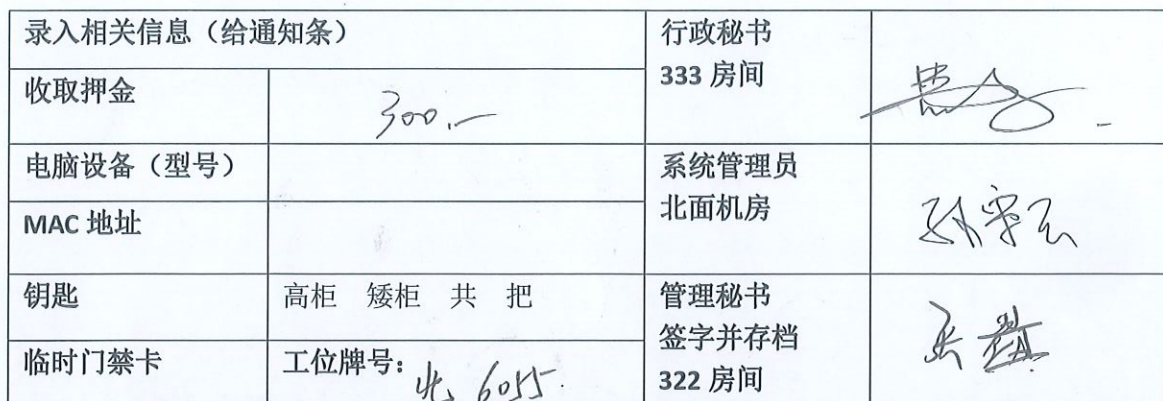 录入相关信息（给通知条）
行政秘书
333 房间
收取押金
300.-
电脑设备（型号）
系统管理员
北面机房
MAC 地址
钥匙
高柜 矮柜 共 把
管理秘书
签字并存档
322 房间
临时门禁卡
工位牌号：
6055